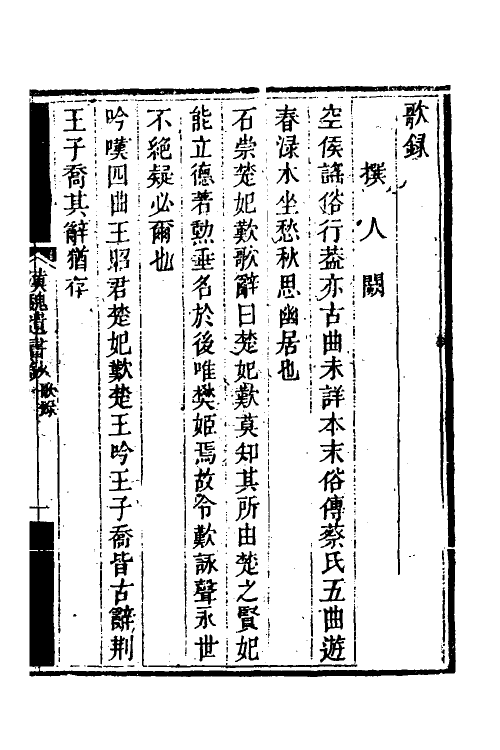 歌録
撰人闕
空侯謡俗行葢亦古曲未詳本末俗傳蔡氏五曲遊
春渌水坐愁秋思幽居也
石崇楚妃歎歌辭曰楚妃歎莫知其所由楚之賢妃
能立德著勲垂名於後唯樊姬焉故令歎詠聲永世
不絶疑必爾也
吟嘆四曲王昭君楚妃歎楚王吟王子喬皆古辭荆
王子喬其辭猶存
漢魏遺書鈔 歌錄
一